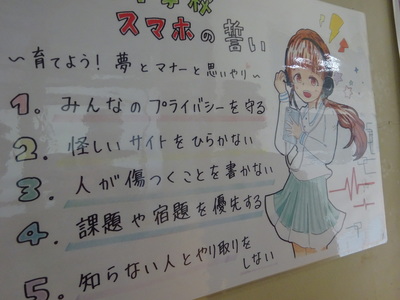 学校
スマホの誓い
～育てよう！夢とマナーと思いやり～
1. みんなのプライバシーを守る
2. 怪しいサイトをひらかない
3. 人が傷つくことを書かない
4. 課題や宿題を優先する
5. 知らない人とやり取りを
しない